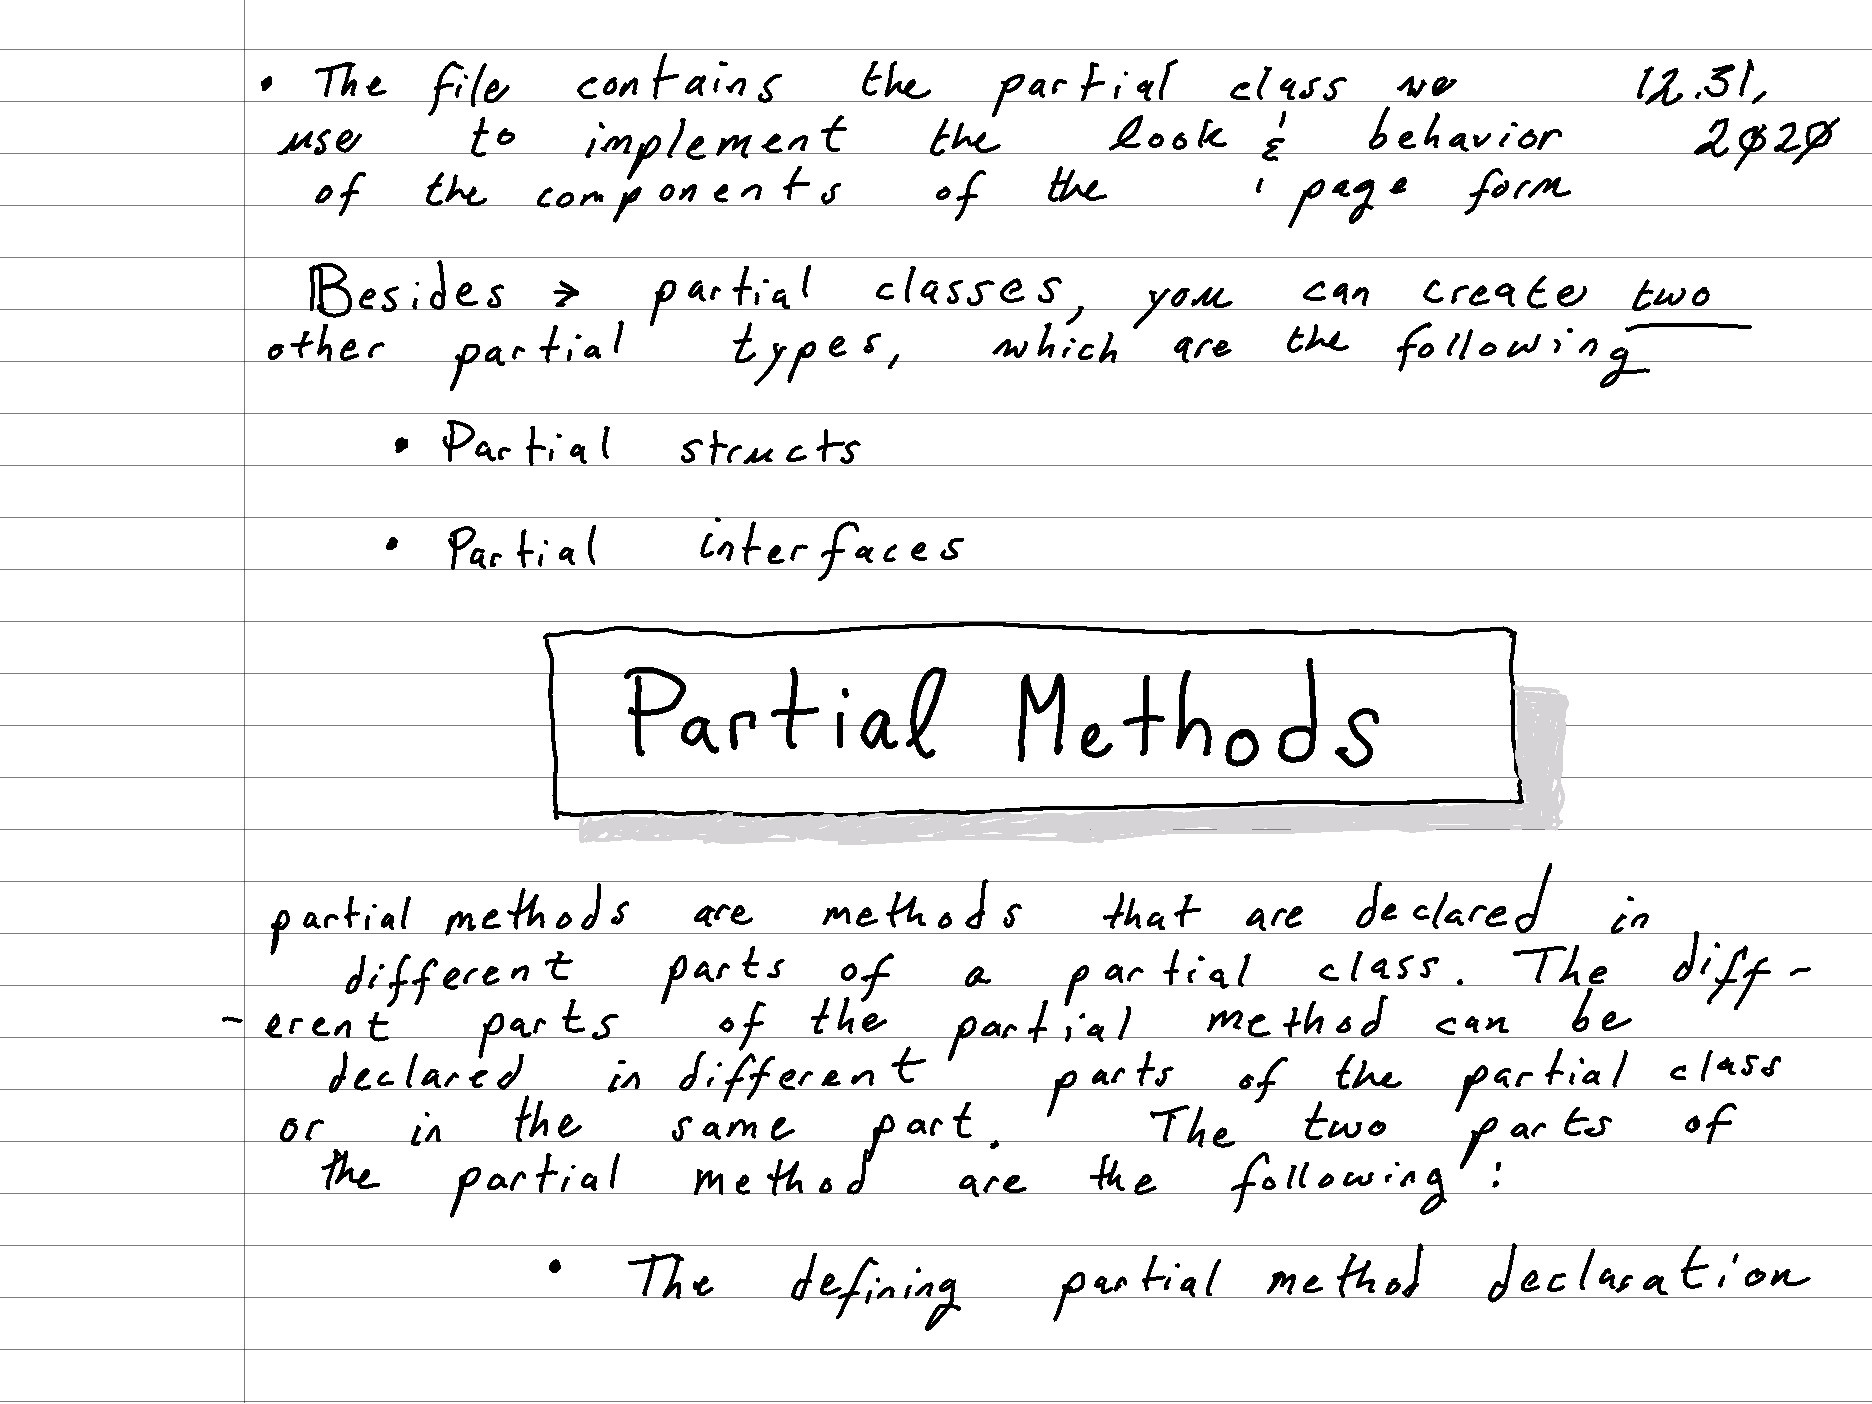 • The file contains the partial class we 12.31,
use to implement the look & behavior 2020
of the components of the page form
Besides → partial classes, you can create two
other partial types, which are the following
• Partial structs
• Partial interfaces
Partial Methods
partial methods are methods that are declared in
different parts of a partial class. The diff-
-erent parts of the partial method can be
declared in different parts of the partial class
or in the same part. The two parts of
the partial method are the following:
• The defining partial method declaration